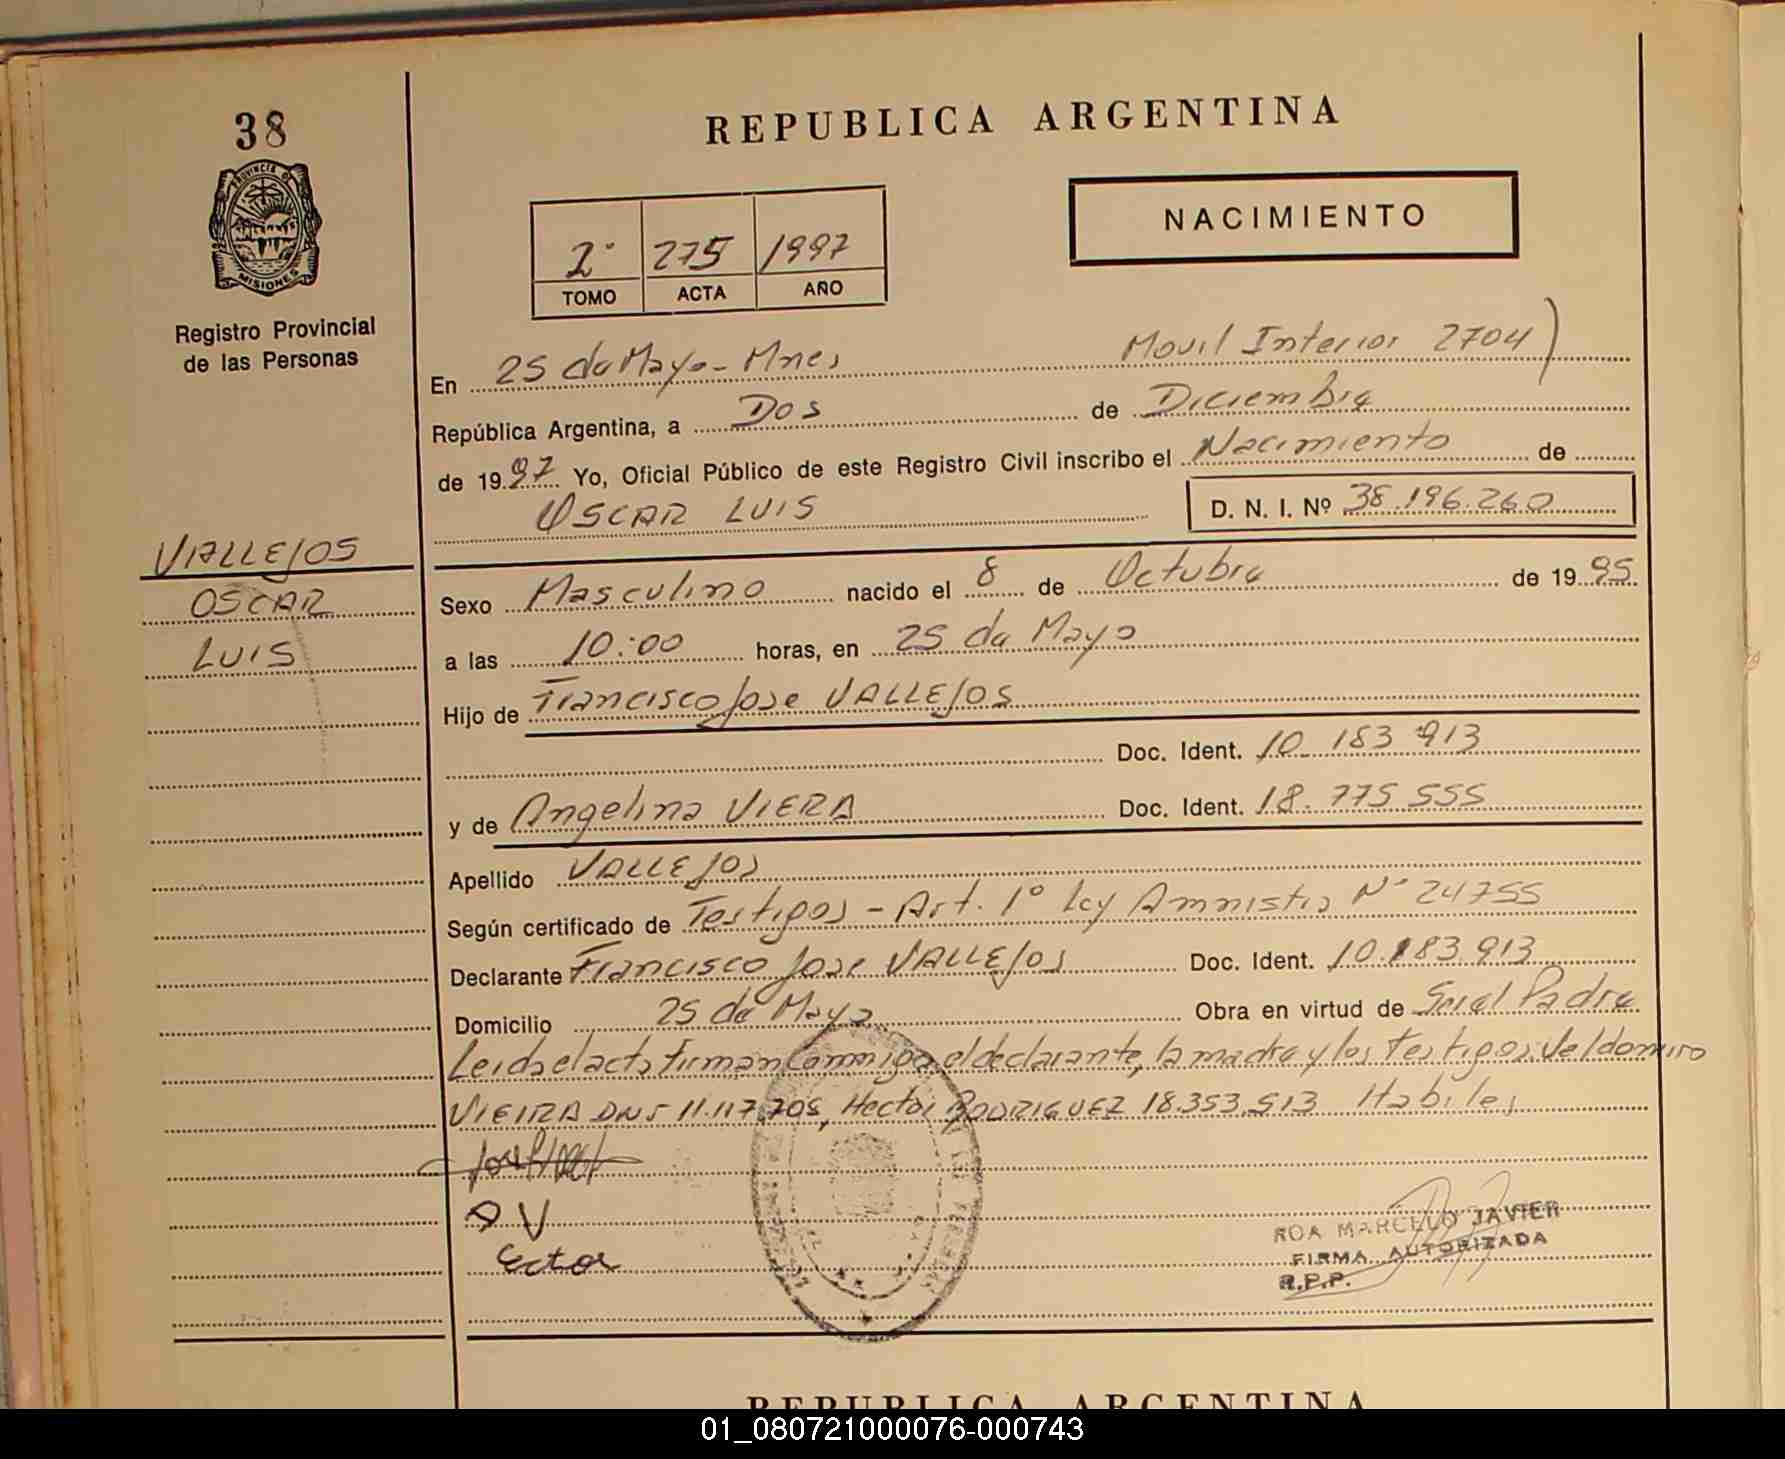 38
REPUBLICA ARGENTINA
PROVINCIA DE
MISIONES
NACIMIENTO
2° 275 1997
TOMO ACTA AÑO
Registro Provincial
de las Personas
En 25 de Mayo - Mnes Movil Interior 2704)
República Argentina, a Dos de Diciembre
de 1997 Yo, Oficial Público de este Registro Civil inscribo el Nacimiento de
OSCAR LUIS D. N. I. Nº 38.196.260
VALLEJOS
OSCAR
LUIS
Sexo Masculino nacido el 8 de Octubre de 1995
a las 10:00 horas, en 25 de Mayo
Hijo de Francisco Jose VALLEJOS
Doc. Ident. 10 183 913
y de Angelina VIERA Doc. Ident. 18.775 555
Apellido VALLEJOS
Según certificado de Testigos - Art. 1° ley Amnistia N° 24755
Declarante Francisco Jose VALLEJOS Doc. Ident. 10.183.913
Domicilio 25 de Mayo Obra en virtud de Ser el Padre
Leida el acta firman Conmigo el declarante, la madre y los testigos Veldomiro
VIEIRA DNI 11.117.705, Hector RODRIGUEZ 18.353.513 Habiles
A V
Ector
ROA MARCELO JAVIER
FIRMA AUTORIZADA
R.P.P.
REPUBLICA ARGENTINA
01_080721000076-000743